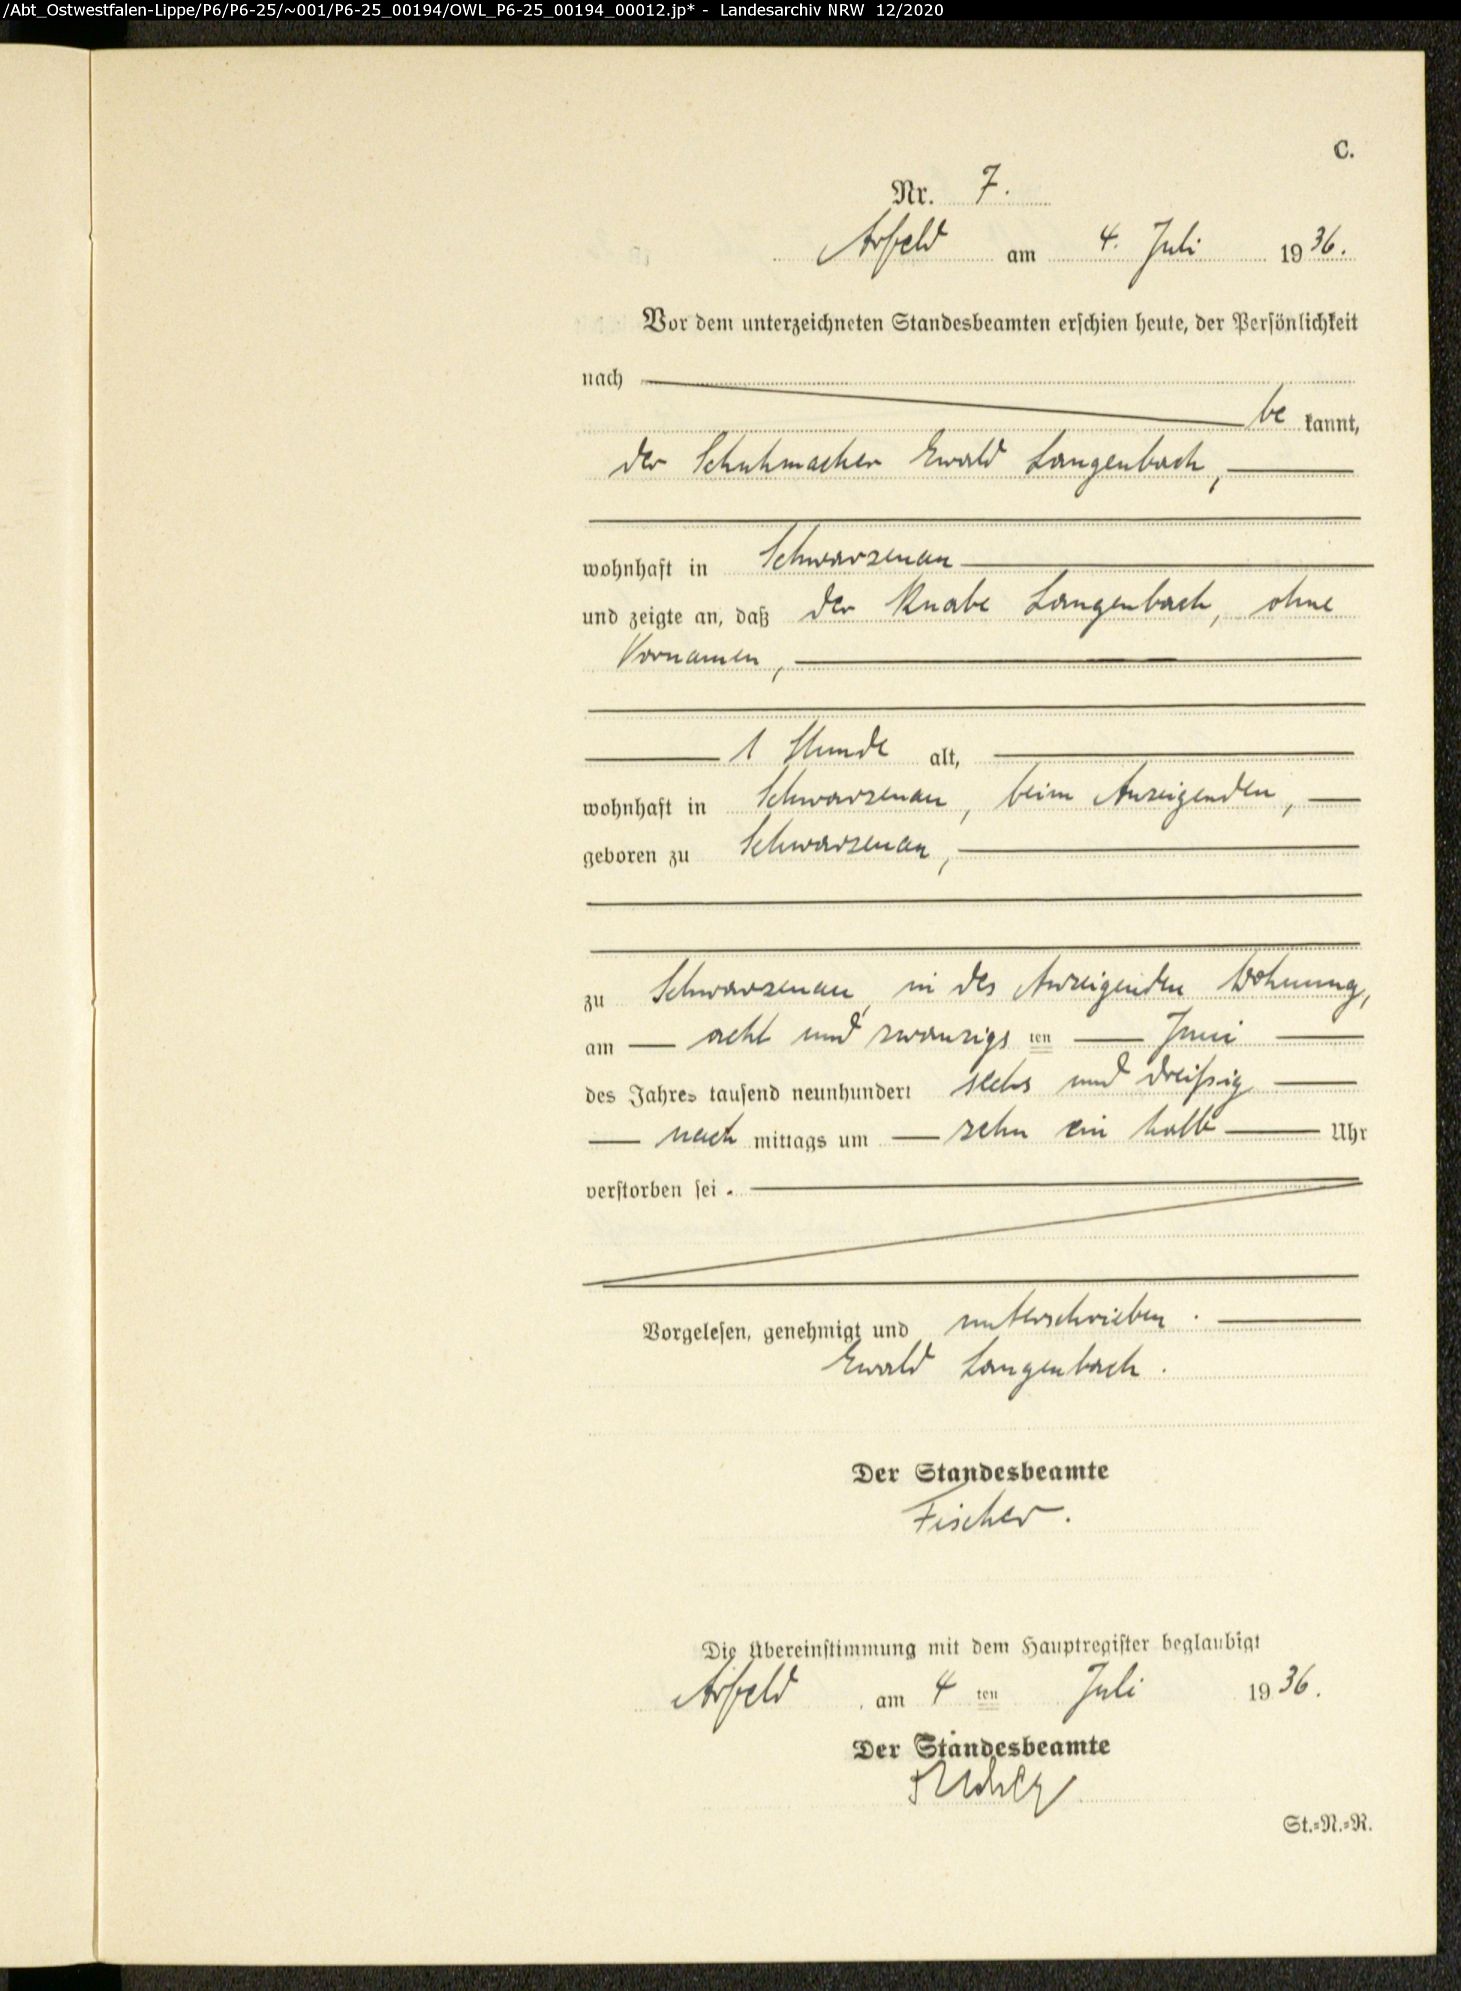 /Abt_Ostwestfalen-Lippe/P6/P6-25/~001/P6-25_00194/OWL_P6-25_00194_00012.jp* - Landesarchiv NRW 12/2020
C.
Nr. 7.
Arfeld am 4. Juli 1936.
Vor dem unterzeichneten Standesbeamten erschien heute, der Persönlichkeit
nach
be kannt,
der Schuhmacher Ewald Langenbach,
wohnhaft in Schwarzenau
und zeigte an, daß der Knabe Langenbach, ohne
Vornamen,
1 Stunde alt,
wohnhaft in Schwarzenau, beim Anzeigenden,
geboren zu Schwarzenau,
zu Schwarzenau, in des Anzeigenden Wohnung,
am acht und zwanzigs ten Juni
des Jahres tausend neunhundert sechs und dreißig
nach mittags um zehn ein halb Uhr
verstorben sei.
Vorgelesen, genehmigt und unterschrieben.
Ewald Langenbach.
Der Standesbeamte
Fischer.
Die Übereinstimmung mit dem Hauptregister beglaubigt
Arfeld, am 4 ten Juli 1936.
Der Standesbeamte
St.=N.=R.